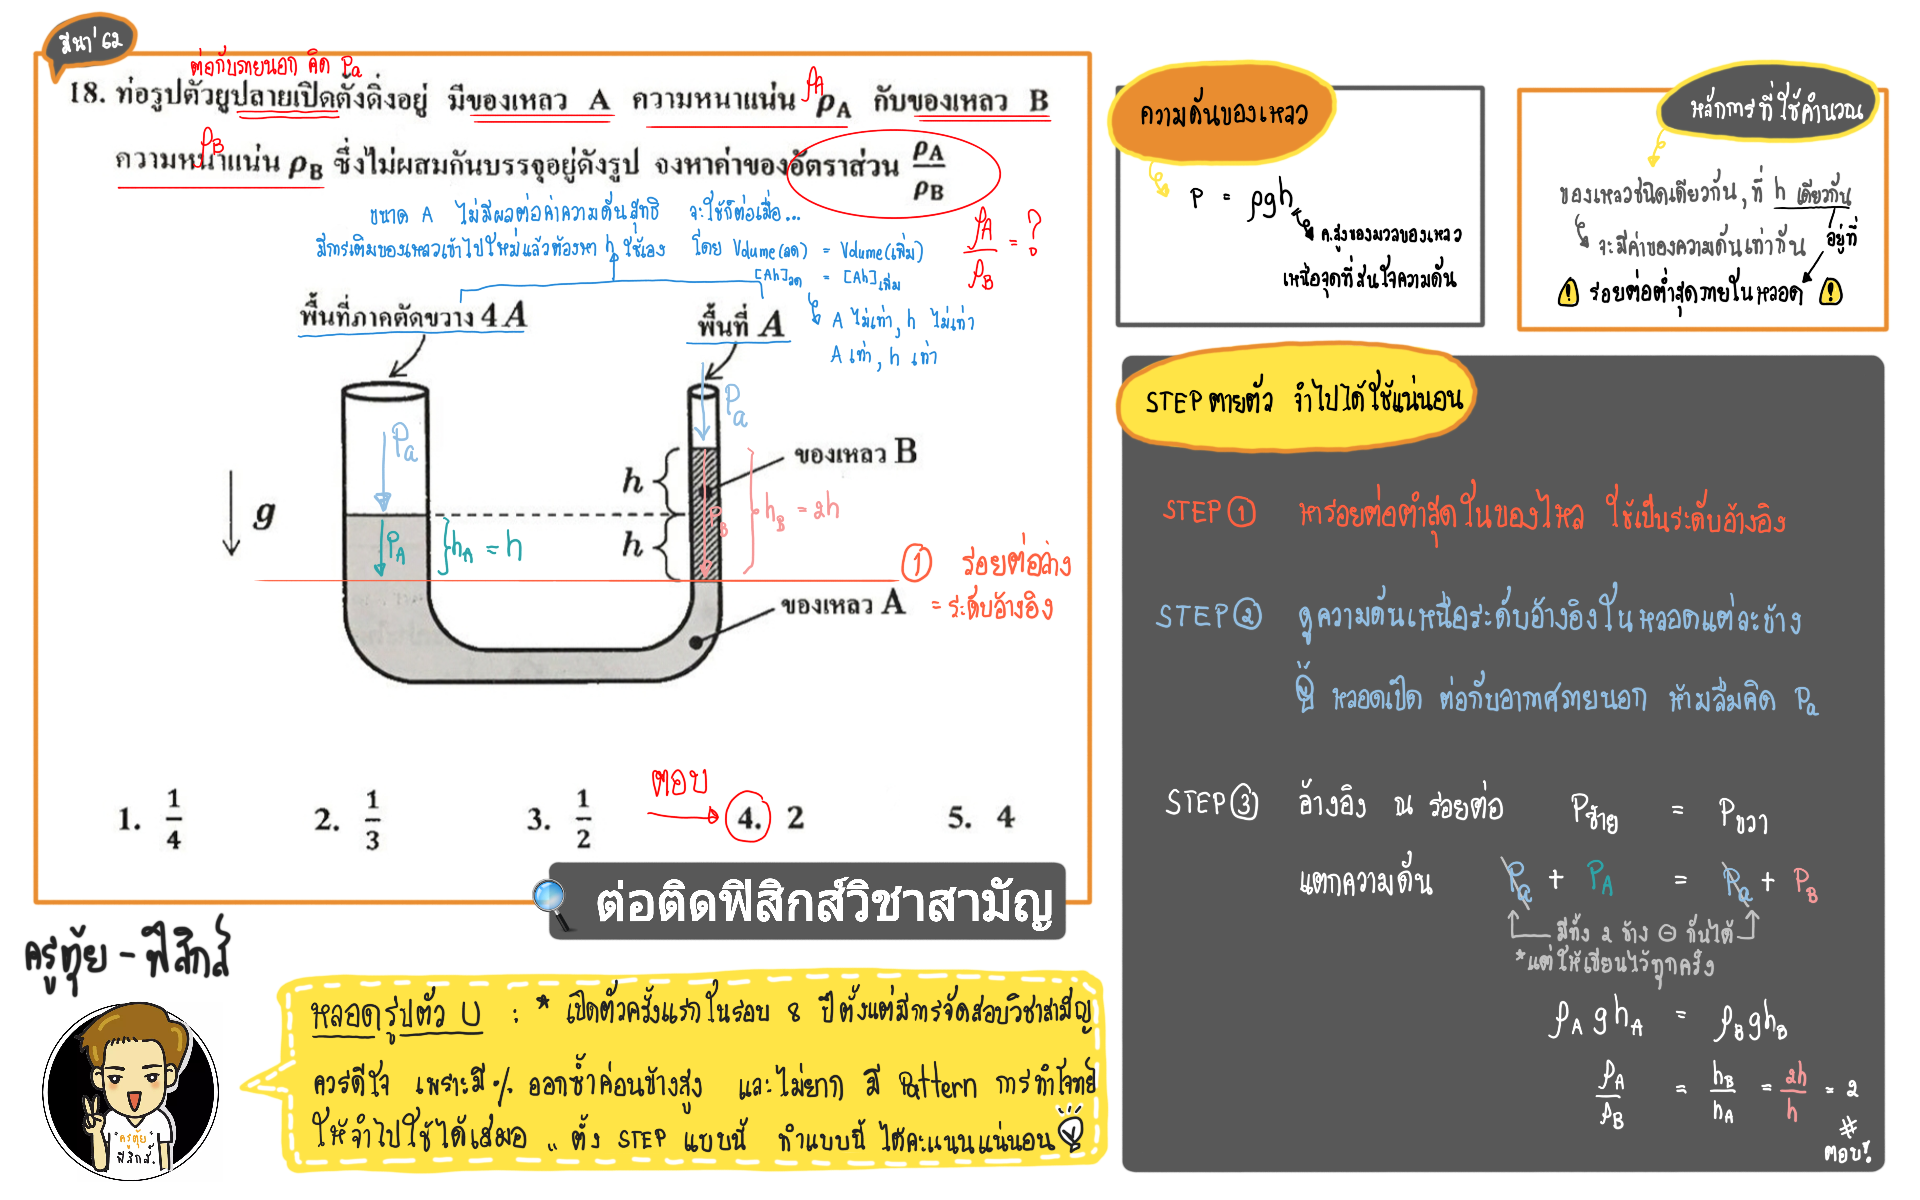 มีนา' 62
ต่อกับภายนอก คิด Pa
18. ท่อรูปตัวยูปลายเปิดตั้งดิ่งอยู่ มีของเหลว A ความหนาแน่น ρA กับของเหลว B
ρA
ความหนาแน่น ρB ซึ่งไม่ผสมกันบรรจุอยู่ดังรูป จงหาค่าของอัตราส่วน ρA/ρB
ρB
ขนาด A ไม่มีผลต่อค่าความดันสุทธิ จะใช้ก็ต่อเมื่อ...
มีการเติมของเหลวเข้าไปใหม่แล้วต้องหา h ใช้เอง โดย Volume(ลด) = Volume(เพิ่ม)
[Ah]ลด = [Ah]เพิ่ม
ρA/ρB = ?
A ไม่เท่า, h ไม่เท่า
A เท่า, h เท่า
พื้นที่ภาคตัดขวาง 4A
พื้นที่ A
Pa
Pa
ของเหลว B
h
hB = 2h
PB
g
PA
hA = h
h
① รอยต่อล่าง
= ระดับอ้างอิง
ของเหลว A
1. 1/4
2. 1/3
3. 1/2
ตอบ
4. 2
5. 4
ต่อติดฟิสิกส์วิชาสามัญ
ครูทุ้ย - ฟิสิกส์
"ครูทุ้ย"
ฟิสิกส์.
หลอดรูปตัว U : * เปิดตัวครั้งแรกในรอบ 8 ปี ตั้งแต่มีการจัดสอบวิชาสามัญ
ควรดีใจ เพราะมี % ออกซ้ำค่อนข้างสูง และไม่ยาก มี Pattern การทำโจทย์
ให้จำไปใช้ได้เสมอ .. ตั้ง STEP แบบนี้ ทำแบบนี้ ได้คะแนนแน่นอน
ความดันของเหลว
P = ρgh
ค.สูงของมวลของเหลว
เหนือจุดที่สนใจความดัน
หลักการที่ใช้คำนวณ
ของเหลวชนิดเดียวกัน, ที่ h เดียวกัน
จะมีค่าของความดันเท่ากัน
อยู่ที่
รอยต่อต่ำสุดภายในหลอด
STEP ตายตัว จำไปได้ใช้แน่นอน
STEP ① หารอยต่อต่ำสุดในของไหล ใช้เป็นระดับอ้างอิง
STEP ② ดูความดันเหนือระดับอ้างอิงในหลอดแต่ละข้าง
หลอดเปิด ต่อกับอากาศภายนอก ห้ามลืมคิด Pa
STEP ③ อ้างอิง ณ รอยต่อ Pซ้าย = Pขวา
แตกความดัน Pa + PA = Pa + PB
มีทั้ง 2 ข้าง ⊖ กันได้
*แต่ให้เขียนไว้ทุกครั้ง
ρA g hA = ρB g hB
ρA/ρB = hB/hA = 2h/h = 2
#
ตอบ!